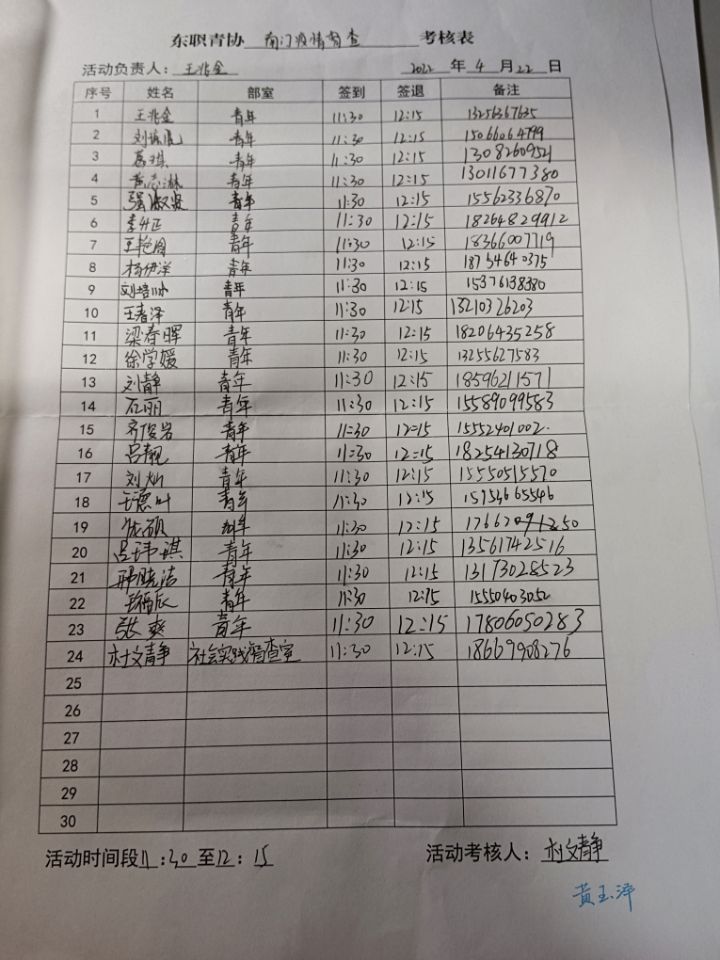 东职青协 南门疫情督查 考核表
活动负责人：王兆金 2022 年 4 月 22 日
序号 姓名 部室 签到 签退 备注
1 王兆金 青年 11:30 12:15 13256367635
2 青年 11:30 12:15 15066064799
3 青年 11:30 12:15 13082609521
4 黄志淋 青年 11:30 12:15 13011677380
5 强淑贤 青年 11:30 12:15 15562336870
6 李升正 青年 11:30 12:15 18264829912
7 青年 11:30 12:15 18366007719
8 杨伊洋 青年 11:30 12:15 18754640375
9 青年 11:30 12:15 15376138380
10 王春泽 青年 11:30 12:15 13210326203
11 梁春晖 青年 11:30 12:15 18206435258
12 徐学媛 青年 11:30 12:15 13255627583
13 刘静 青年 11:30 12:15 18596211571
14 石丽 青年 11:30 12:15 15589099583
15 齐俊岩 青年 11:30 12:15 15552401002
16 吕靓 青年 11:30 12:15 18254130718
17 刘灿 青年 11:30 12:15 15550515570
18 王德叶 青年 11:30 12:15
19 青年 11:30 12:15
20 吕玮琪 青年 11:30 12:15 13561742516
21 邢晓洁 青年 11:30 12:15 13173028523
22 青年 11:30 12:15 15550403052
23 张爽 青年 11:30 12:15 17806050283
24 杜文静 社会实践督查室 11:30 12:15 18669908276
25
26
27
28
29
30
活动时间段11:30至12:15 活动考核人：杜文静
黄玉萍